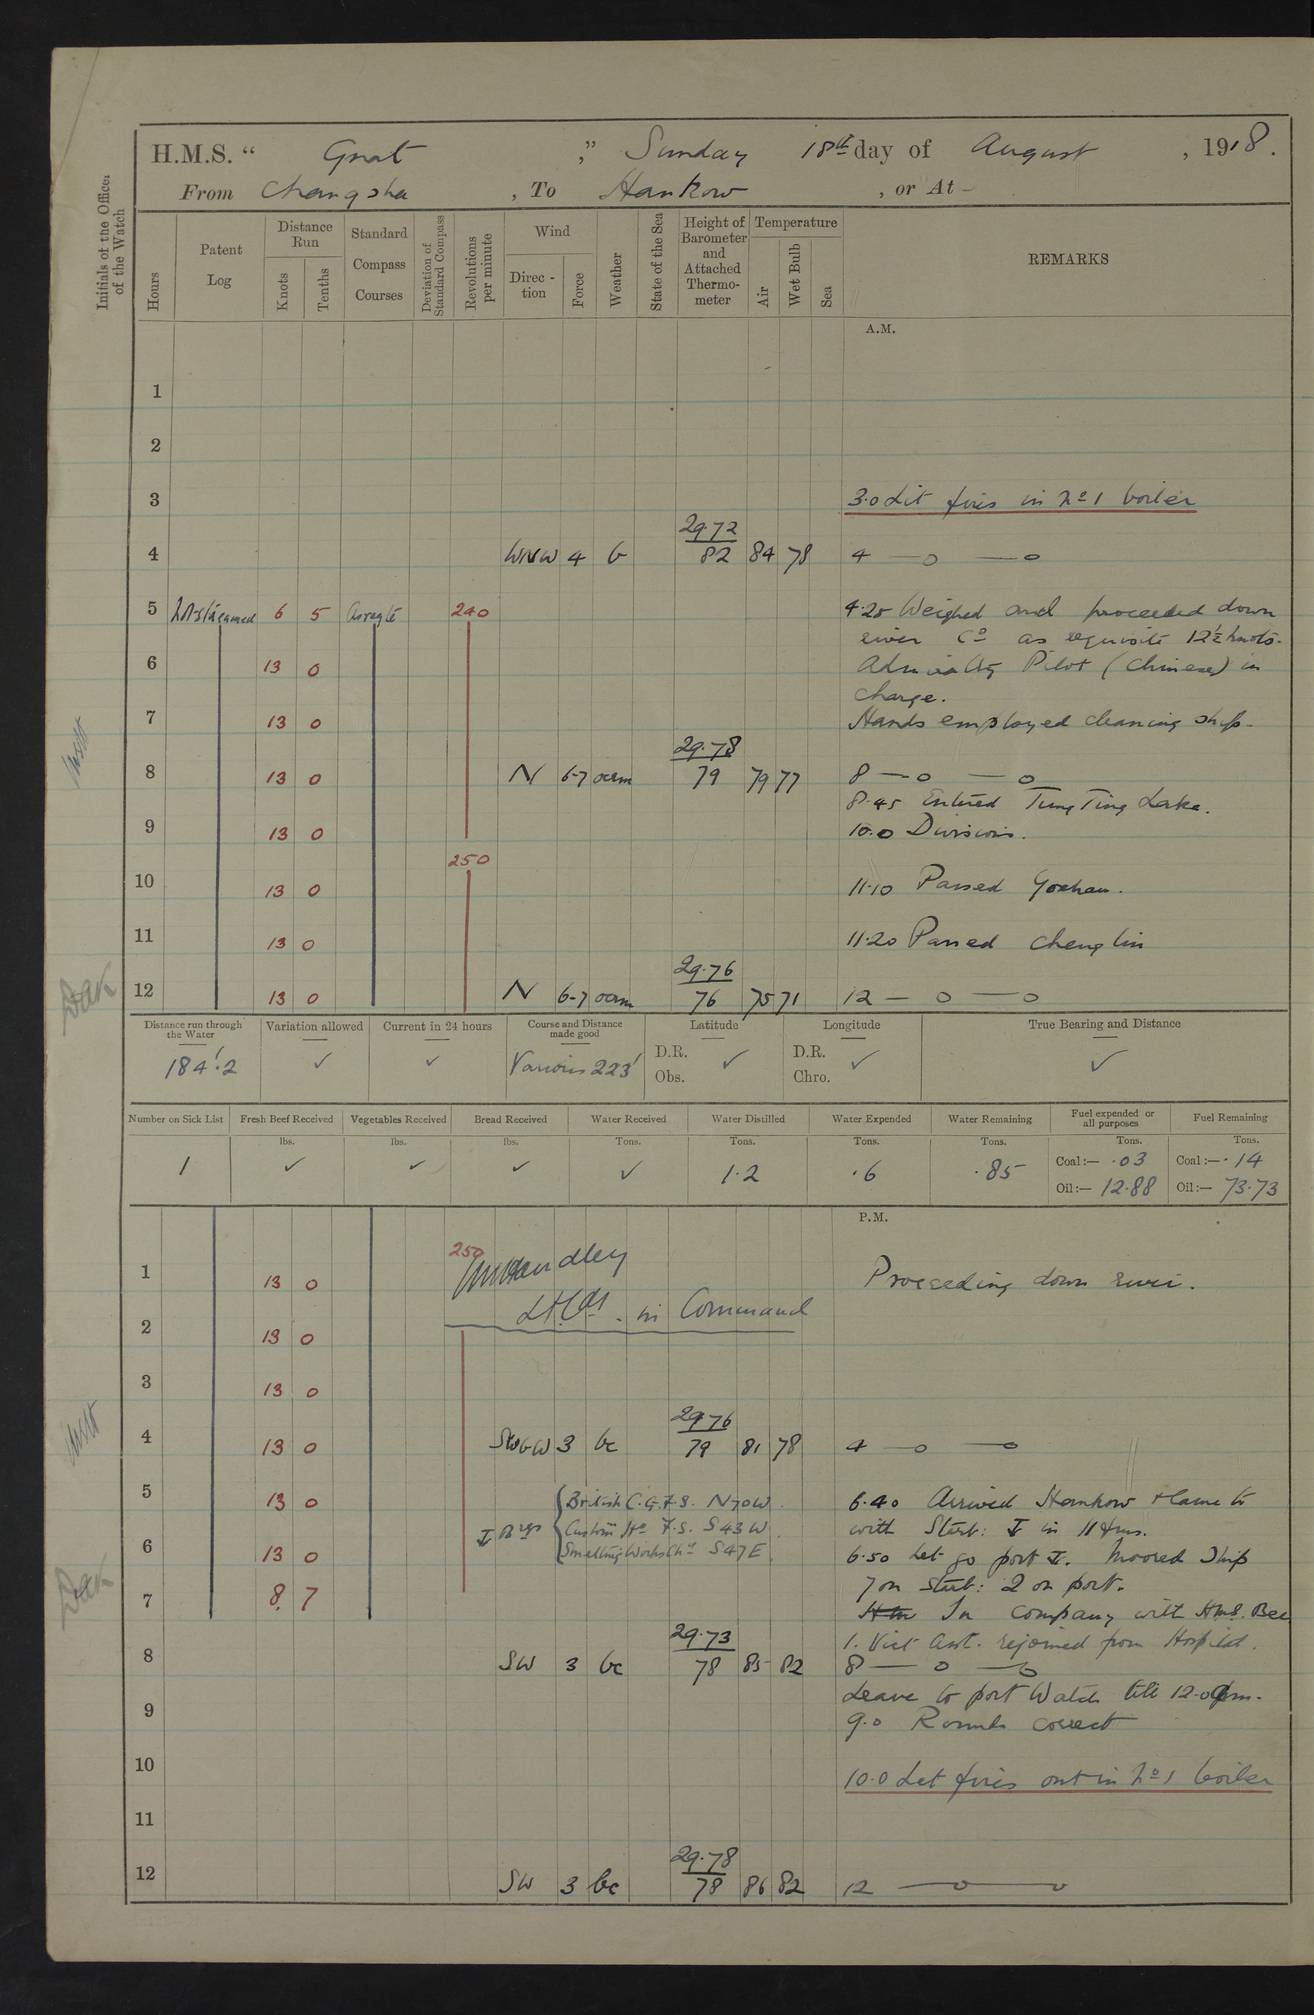 H.M.S. “ Gnat ,” Sunday 18th day of August , 1918.
From Changsha , To Hankow , or At -
Initials of the Officer of the Watch
Hours
Patent Log
Distance Run
Knots
Tenths
Standard Compass Courses
Deviation of Standard Compass
Revolutions per minute
Wind
Direc-tion
Force
Weather
State of the Sea
Height of Barometer and Attached Thermo-meter
Temperature
Air
Wet Bulb
Sea
REMARKS
A.M.
1
2
3 3.0 Lit fires in No 1 boiler
29.72
4 WNW 4 b 82 84 78 4 —o —o
5 Not streamed 6 5 As reqte 240 4.20 Weighed and proceeded down
river Co as requisite 12½ knots.
6 13 0 Admiralty Pilot (Chinese) in
charge.
7 13 0 Hands employed cleaning ship.
29.78
8 13 0 N 6-7 ocm 79 79 77 8 —o —o
8.45 Entered Tung Ting Lake.
9 13 0 10.0 Divisions.
250
10 13 0 11.10 Passed Yochau.
11 13 0 11.20 Passed Chenglin
29.76
12 13 0 N 6-7 ocm 76 75 71 12 — o —o
Distance run through the Water
Variation allowed
Current in 24 hours
Course and Distance made good
Latitude
Longitude
True Bearing and Distance
184'.2 ✓ ✓ Various 223' D.R. Obs. ✓ D.R. Chro. ✓ ✓
Number on Sick List
Fresh Beef Received
Vegetables Received
Bread Received
Water Received
Water Distilled
Water Expended
Water Remaining
Fuel expended or all purposes
Fuel Remaining
lbs. lbs. lbs. Tons. Tons. Tons. Tons. Tons. Tons.
1 ✓ ✓ ✓ ✓ 1.2 .6 .85 Coal:— .03 Coal:— .14
Oil:— 12.88 Oil:— 73.73
P.M.
250
1 13 0 Handley Proceeding down river.
Lt Cdr. in Command
2 13 0
3 13 0
29.76
4 13 0 SWbW 3 bc 79 81 78 4 —o —o
5 13 0 British C.G.F.S. N70W. 6.40 Arrived Hankow & came to
Brgs Custom Ho F.S. S43W with Starb: ⚓ in 11 fms.
6 13 0 Smelting Works Chy S47E. 6.50 Let go port ⚓. Moored Ship
7 8. 7 7 on starb: 2 on port.
In company with HMS. Bee
29.73 1. Vict Asst. rejoined from Hospital.
8 SW 3 bc 78 85 82 8 — o —o
Leave to port Watch till 12.0 pm.
9 9.0 Rounds correct
10 10.0 Let fires out in No 1 boiler
11
29.78
12 SW 3 bc 78 86 82 12 —o —o